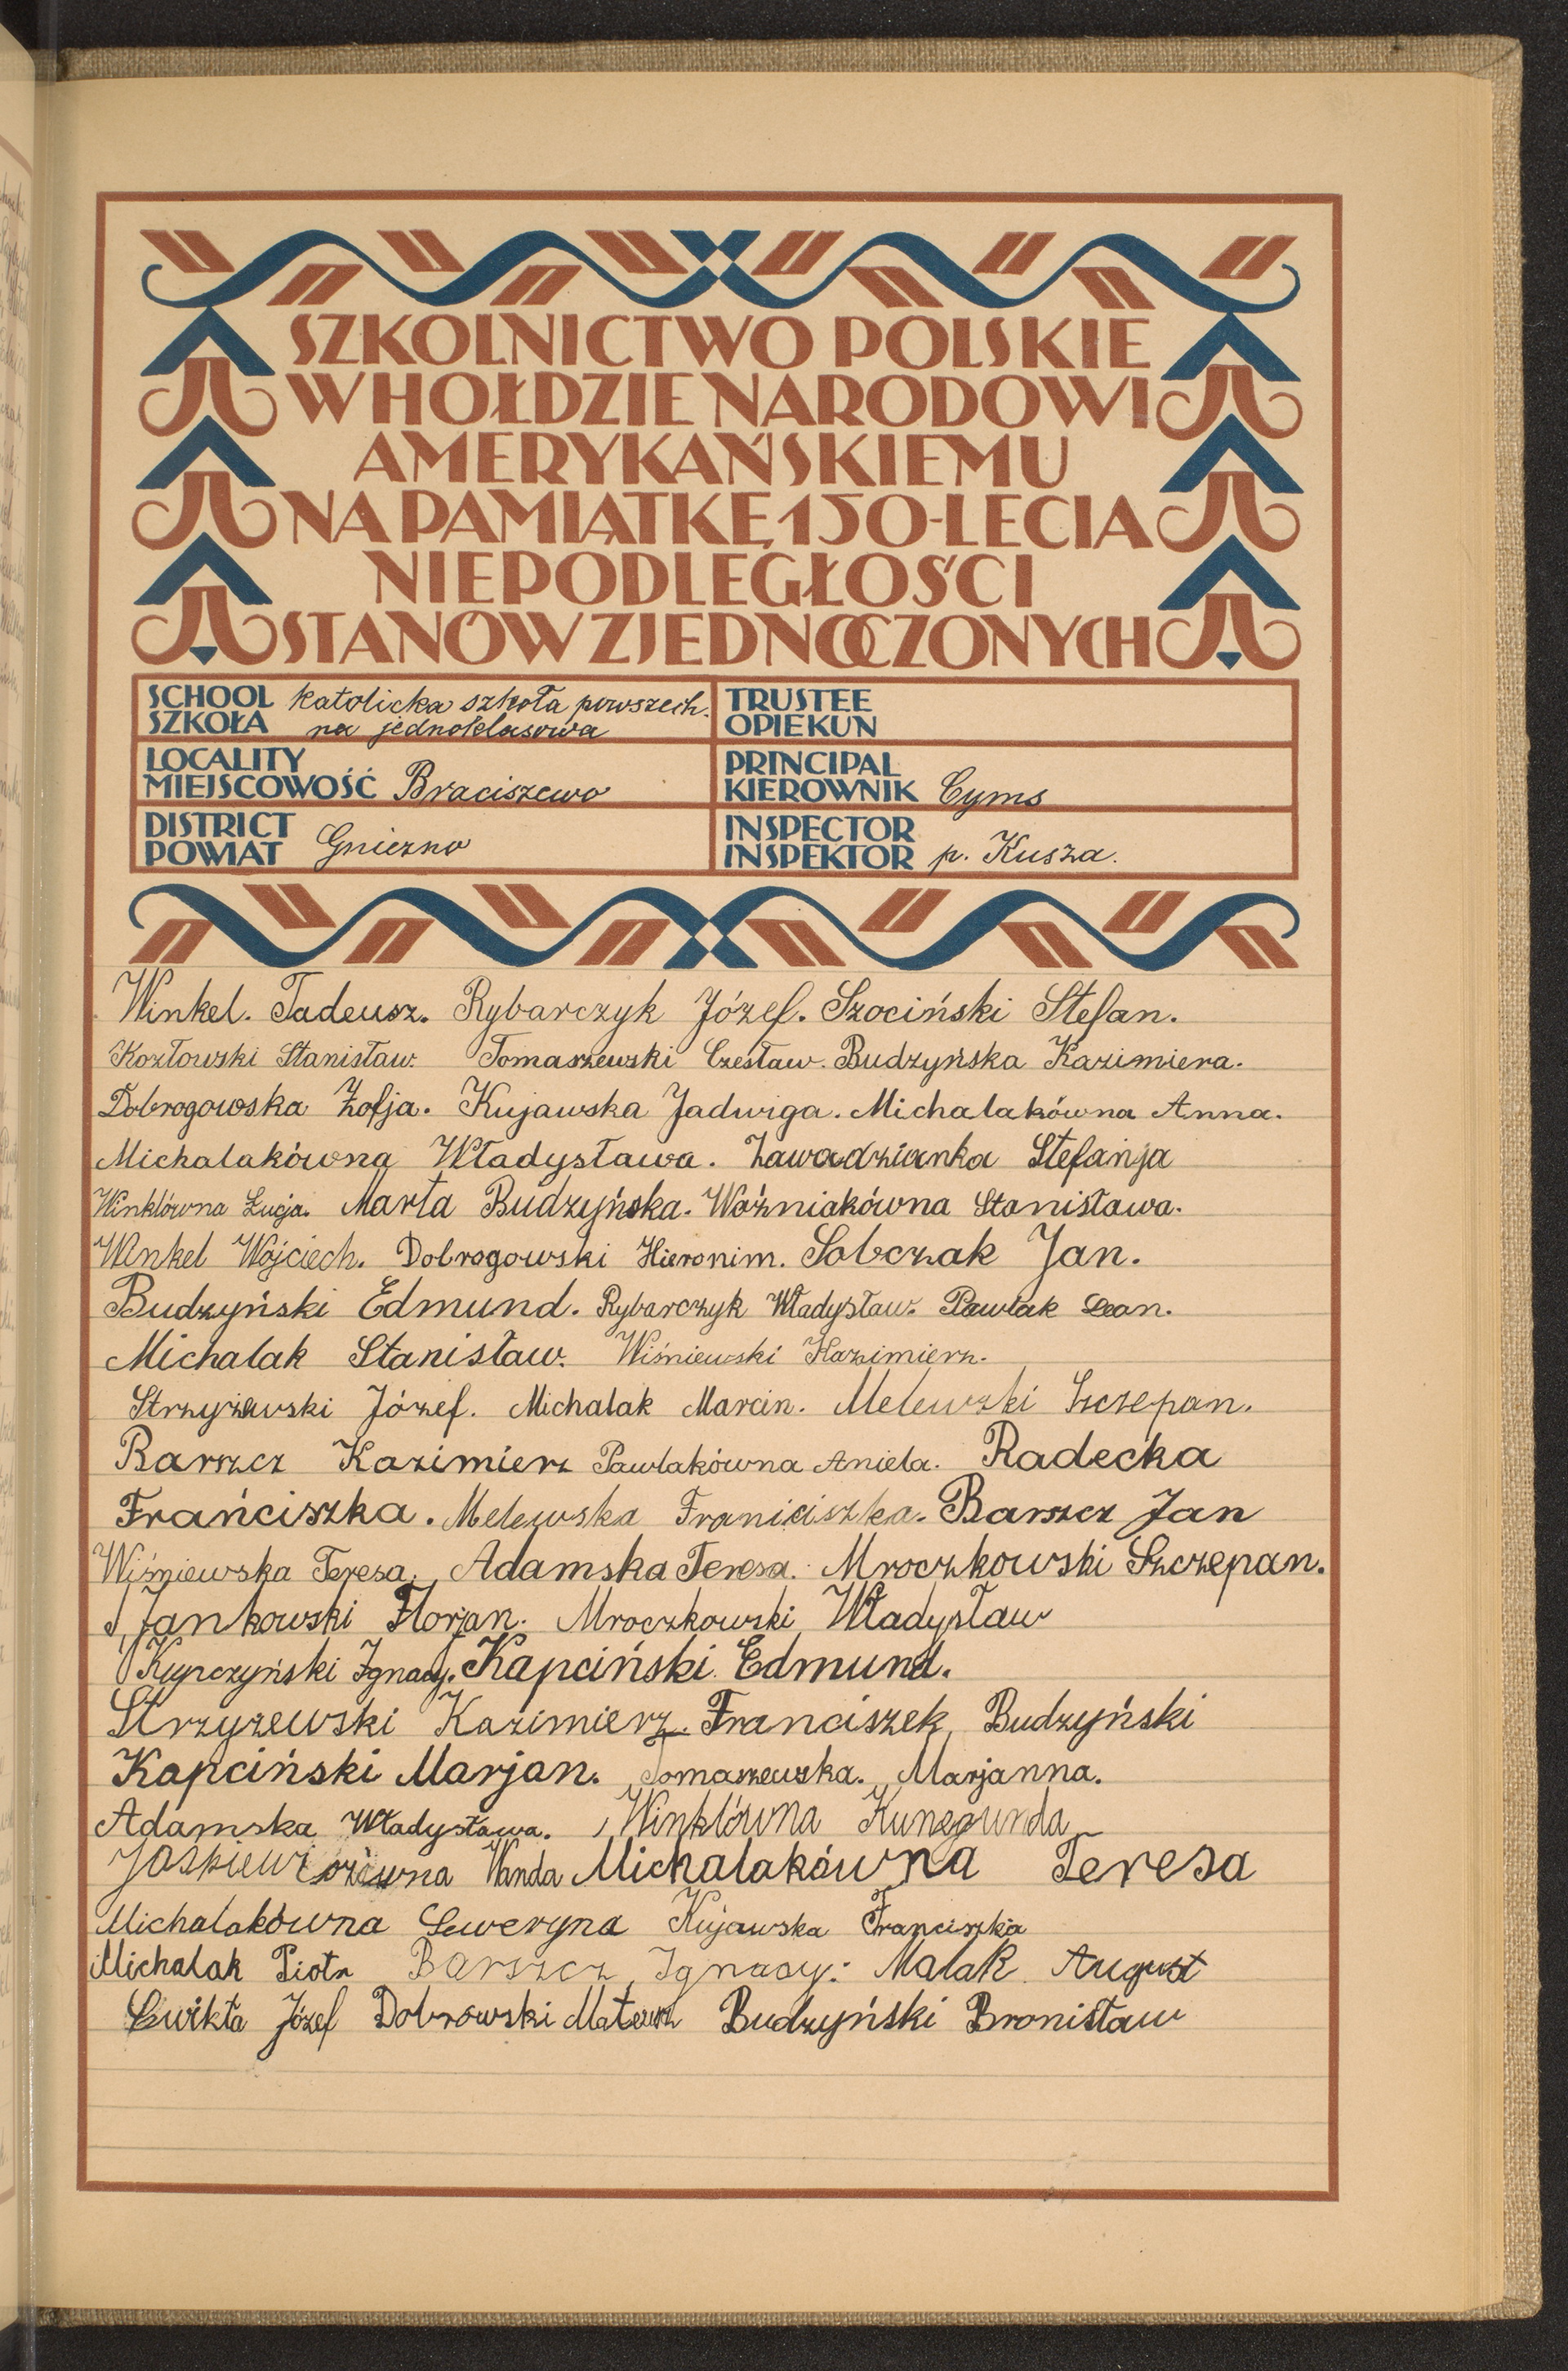 SZKOLNICTWO POLSKIE
W HOŁDZIE NARODOWI
AMERYKAŃSKIEMU
NA PAMIĄTKĘ 150-LECIA
NIEPODLEGŁOŚCI
STANÓW ZJEDNOCZONYCH
SCHOOL SZKOŁA katolicka szkoła powszech.
na jednoklasowa
TRUSTEE OPIEKUN
LOCALITY MIEJSCOWOŚĆ Braciszewo
PRINCIPAL KIEROWNIK Cyms
DISTRICT POWIAT Gniezno
INSPECTOR INSPEKTOR p. Kusza.
Winkel. Tadeusz. Rybarczyk Józef. Szociński Stefan.
Kozłowski Stanisław. Tomaszewski Czesław. Budzyńska Kazimiera.
Dobrogowska Zofja. Kujawska Jadwiga. Michalakówna Anna.
Michalakówna Władysława. Zawadzianka Stefanja
Winklówna Łucja. Marta Budzyńska. Woźniakówna Stanisława.
Winkel Wojciech. Dobrogowski Hieronim. Sobczak Jan.
Budzyński Edmund. Rybarczyk Władysław. Pawlak Leon.
Michalak Stanisław. Wiśniewski Kazimierz.
Strzyżewski Józef. Michalak Marcin. Melewski Szczepan.
Barszcz Kazimierz Pawlakówna Aniela. Radecka
Frańciszka. Melewska Franiciszka. Barszcz Jan
Wiśniewska Teresa. Adamska Teresa. Mroczkowski Szczepan.
Jankowski Florjan. Mroczkowski Władysław
Kupczyński Ignacy. Kapciński Edmund.
Strzyżewski Kazimierz. Franciszek Budzyński
Kapciński Marjan. Tomaszewska. Marjanna.
Adamska Władysława. Winklówna Kunegunda
Wanda Michalakówna Teresa
Michalakówna Seweryna Kujawska Franciszka
Michalak Piotr Barszcz Ignacy. Malak August
Ćwikła Józef Dobrowski Mateusz Budzyński Bronisław